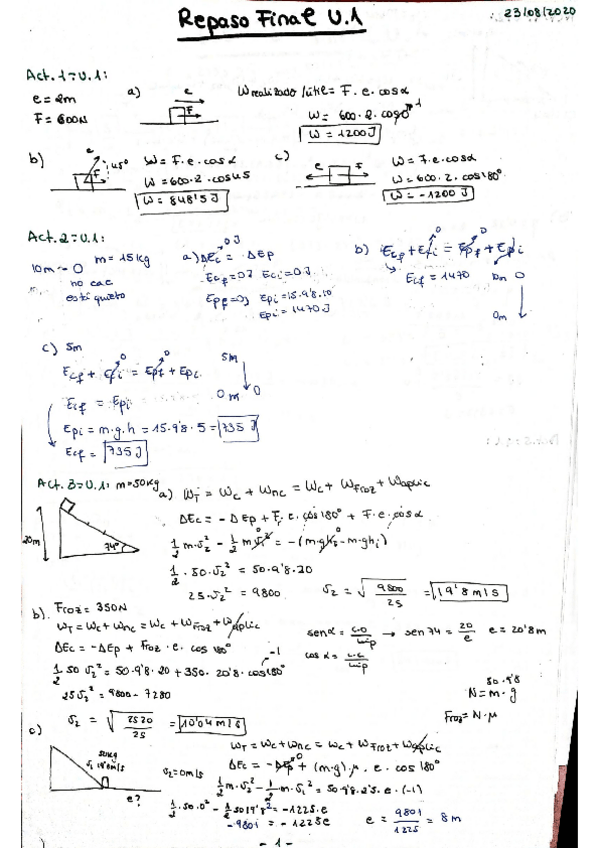 Repaso Final U.1
23/08/2020
Act. 1 - U.1:
e = 2m
F = 600N
a)
e
F
W realizado/útil = F. e. cosα
W = 600. 2. cos0° 1
W = 1200 J
b)
e
F
45°
W = F. e. cosα
W = 600. 2. cos45
W = 848'5 J
c)
e
F
W = F. e. cosα
W = 600. 2. cos180°
W = -1200 J
Act. 2 - U.1:
10m - O
m = 15 kg
no cae
está quieto
a) ΔEc = - ΔEp
0 J
Ecf = 0 J Eci = 0 J
Epf = 0 J Epi = 15. 9'8. 10
Epi = 1470 J
b) Ecf + Eci = Epf + Epi
0 0
Ecf = 1470
10m O
0m
c) 5m
Ecf + Eci = Epf + Epi
0 0
Ecf = Epi
Epi = m. g. h = 15. 9'8. 5 = 735 J
Ecf = 735 J
5m
0m O
Act. 3 - U.1: m = 50kg
20m
74°
a) WT = Wc + Wnc = Wc + WFroz + Waplic
ΔEc = - ΔEp + F. e. cos 180° + F. e. cosα
1/2 m. v₂² - 1/2 m. v₁² = - (m. g h₂ - m. g h₁)
1/2 . 50. v₂² = 50. 9'8. 20
25. v₂² = 9800
v₂ = √9800/25 = 19'8 m/s
b). Froz = 350N
WT = Wc + Wnc = Wc + WFroz + Waplic
ΔEc = -ΔEp + Froz . e. cos 180°
1/2 50 v₂² = 50. 9'8. 20 + 350. 20'8. cos180° -1
25 v₂² = 9800 - 7280
v₂ = √2520/25 = 10'04 m/s
senα = c.o/hip → sen 74 = 20/e e = 20'8 m
cosα = c.c/hip
50. 9'8
N = m. g
Froz = N. μ
c)
50kg
v₁ 19'8m/s
v₂ = 0 m/s
e?
WT = Wc + Wnc = Wc + WFroz + Waplic
ΔEc = - ΔEp + (m. g). μ. e. cos 180°
1/2 m. v₂² - 1/2 m. v₁² = 50. 9'8. 2'5. e. (-1)
1/2 . 50. 0² - 1/2 50 19'8² = -1225. e
-9801 = -1225e
e = 9801/1225 = 8m
- 1 -